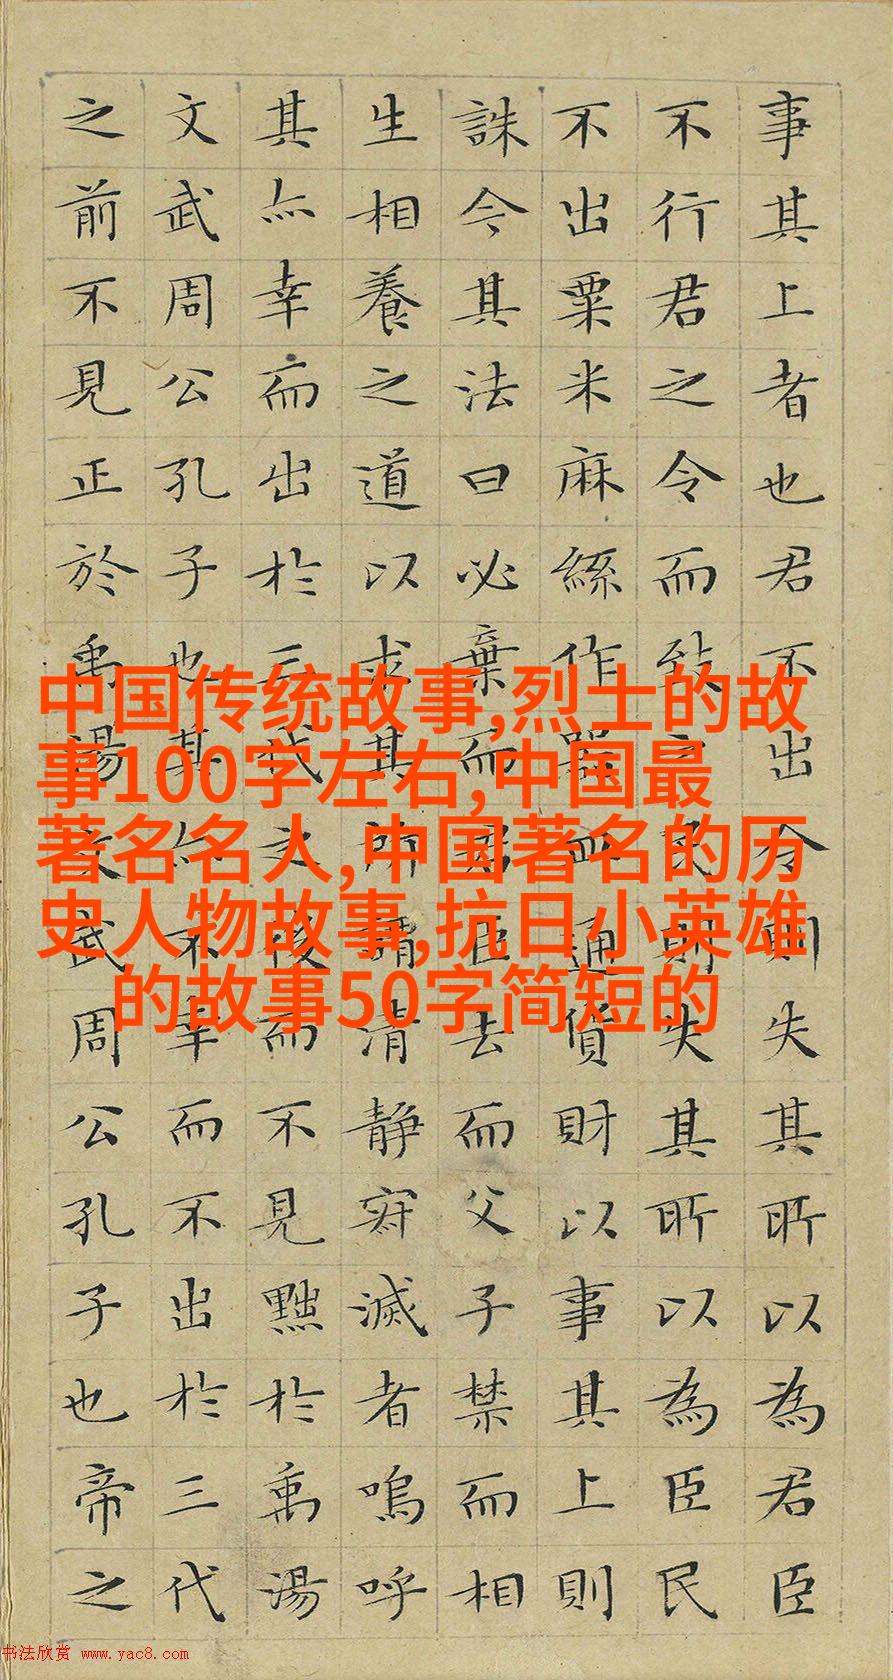 事其上者也君不出令則失其所以為君臣
不行君之令而致之民則失其所以為臣民
不出粟米麻絲作器皿通貨財以事其上則
誅今其法曰必棄而君臣去而父子禁而相
生相養之道以求其所謂清静寂滅者嗚呼
其亦幸而出於三代之後而不見黜於禹湯
文武周公孔子也其亦不幸而不出於三代
之前不見正於禹湯文武周公孔子也帝之
中国传统故事,烈士的故
事100字左右,中国最
著名名人,中国著名的历
史人物故事,抗日小英雄
的故事50字简短的
书法欣赏 www.yac8.com